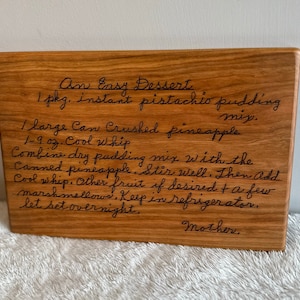 An Easy Dessert
1 pkg. instant pistachio pudding
mix.
1 large Can Crushed pineapple
1-9 oz. Cool Whip
Combine dry pudding mix with the
canned pineapple. Stir well. Then add
Cool whip. Other fruit if desired & a few
marshmellows. Keep in refrigerator.
let set overnight.
Mother.